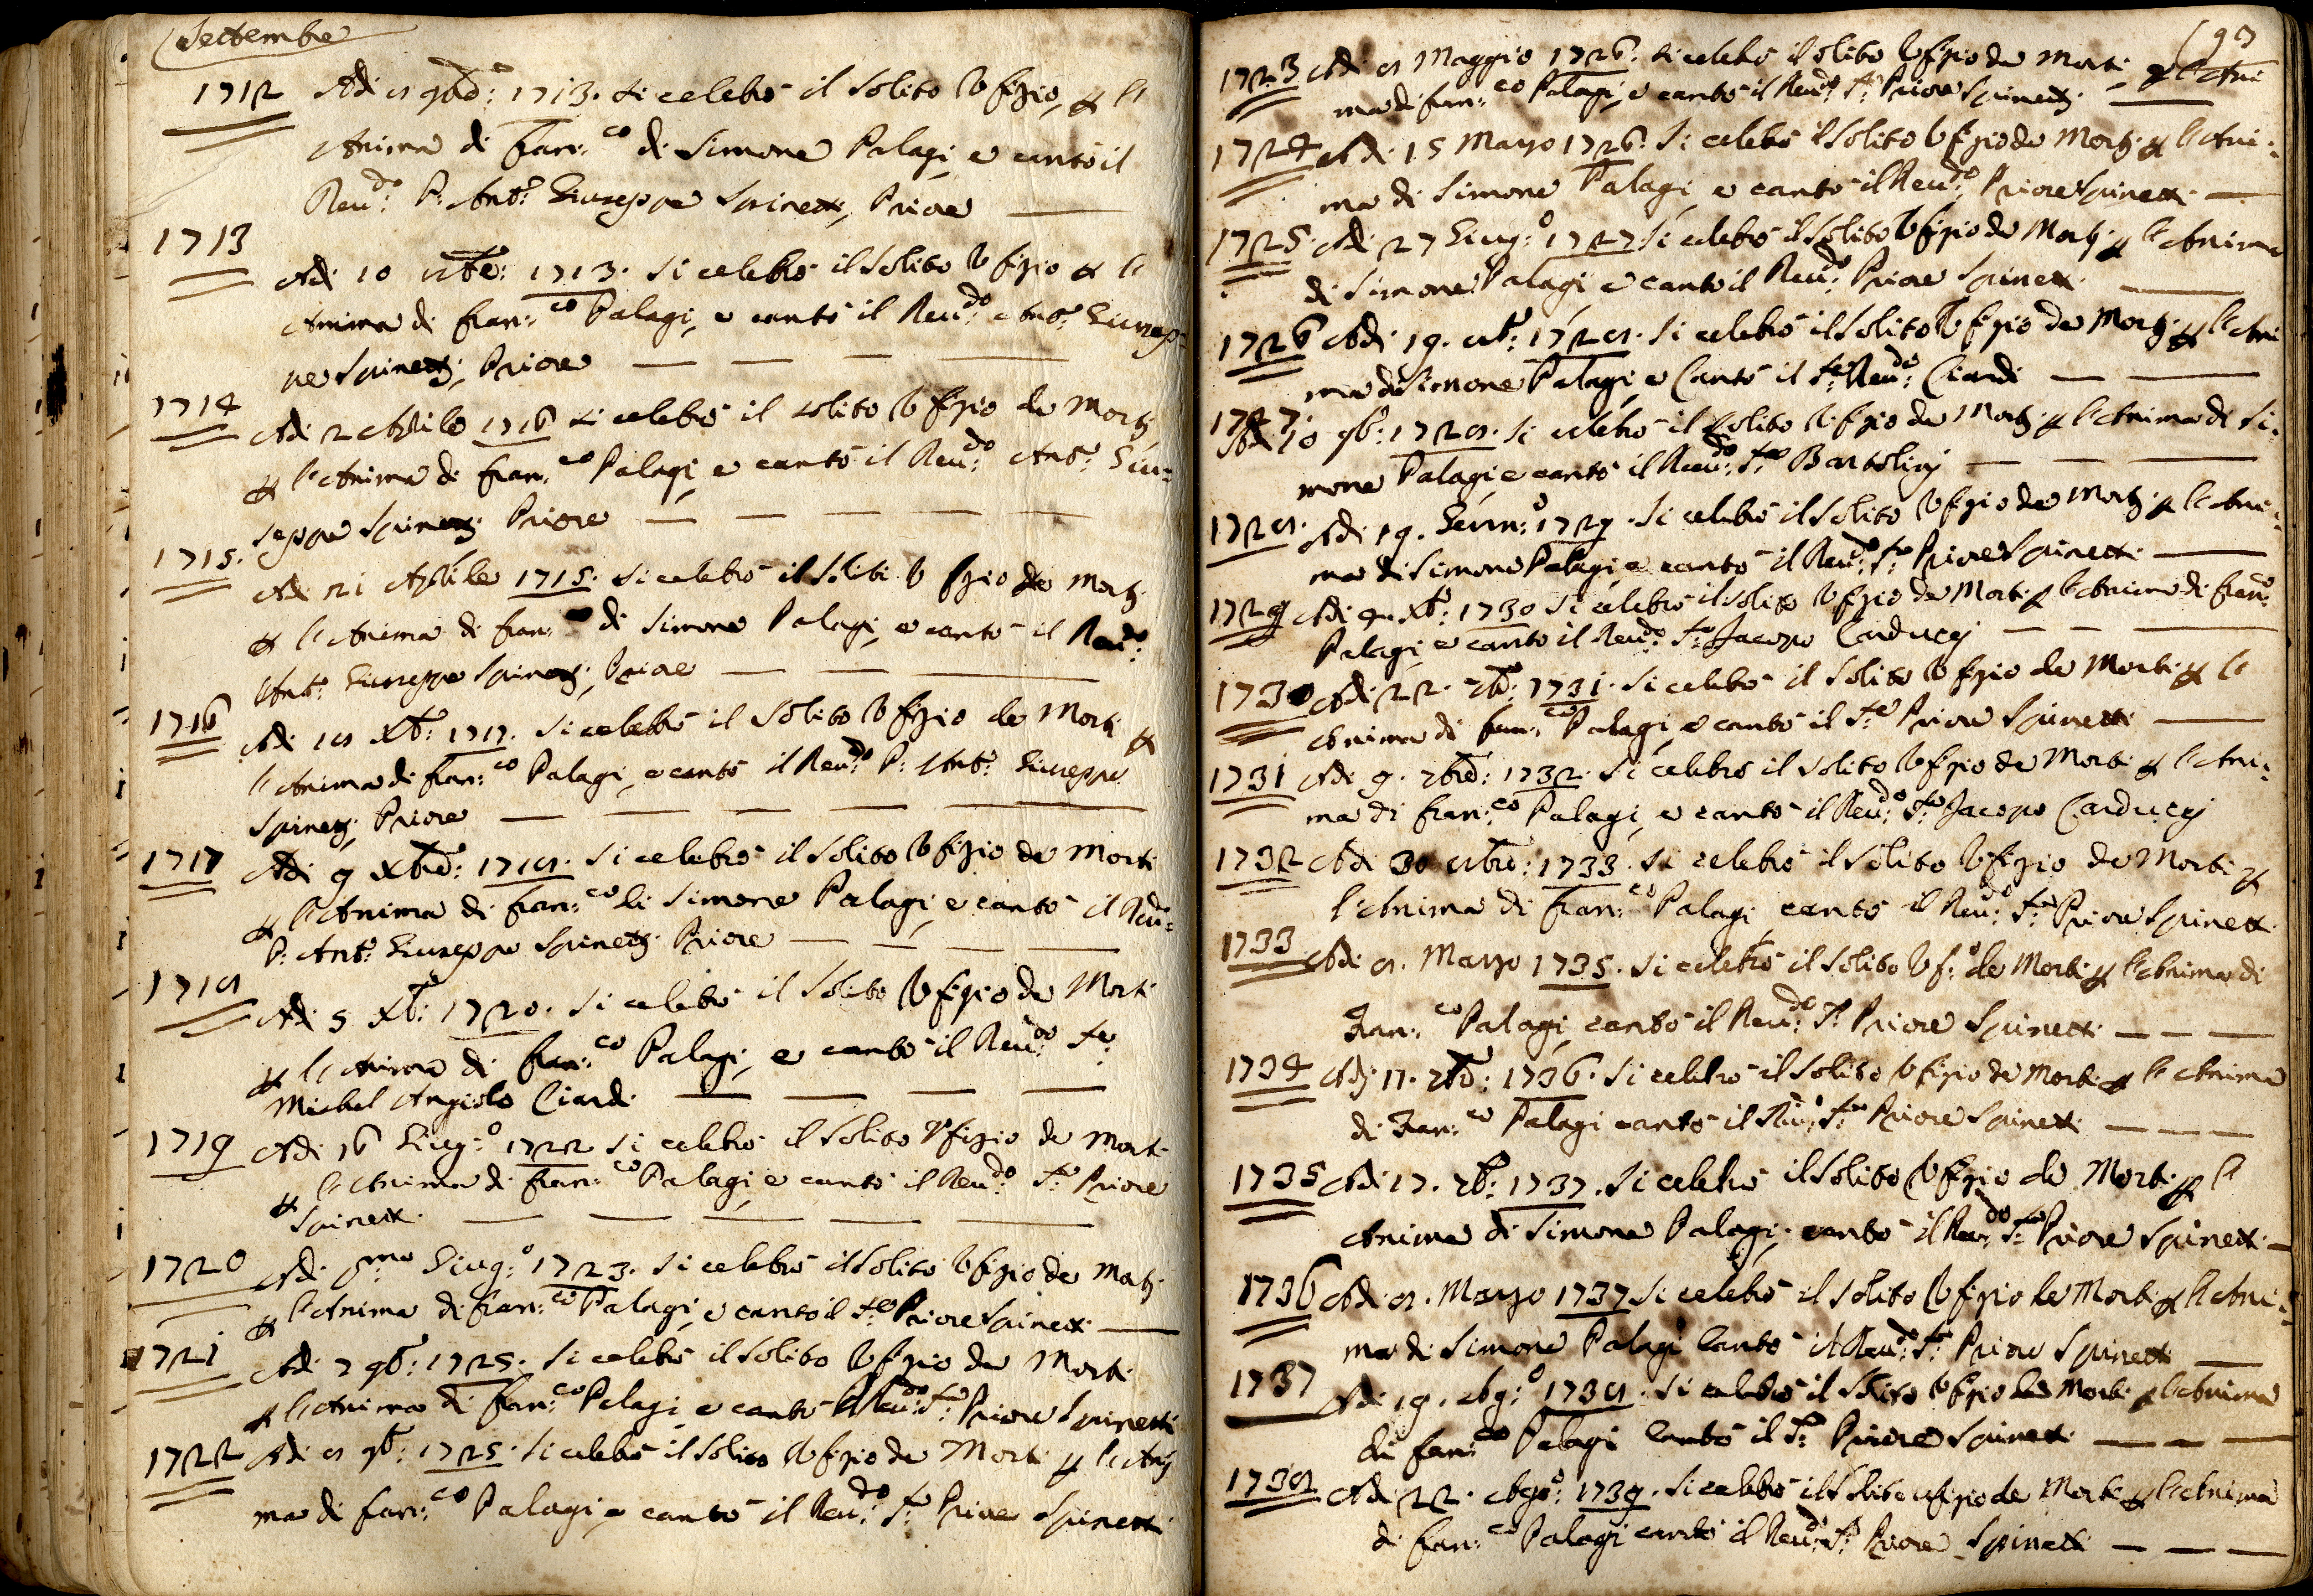 Settembre
1712 Adi 8 9bre: 1713. si celebrò il solito Ufizio, p l'
Anima di Fran:co di Simone Palagi, e cantò il
Reu:do P: Anto: Giuseppe Spinetti, Priore
1713
Adi 10 8bre: 1713. si celebrò il solito Ufizio p l'
Anima di Fran:co Palagi, e cantò il Reu:do Anto: Giusep=
pe Spinetti, Priore
1714
Adi 2 Aprile 1716 si celebrò il solito Ufizio de Morti
p l'Anima di Fran:co Palagi, e cantò il Reu:do Anto: Giu=
seppe Spinetti Priore
1715.
Adi 21 Aprile 1715. si celebrò il soliti Ufizio de Morti
p l'Anima di Fran:co di Simone Palagi, e cantò il Reu:do
Anto: Giuseppe Spinetti, Priore
1716
Adi 18 Xbre: 1717. si celebrò il solito Ufizio de Morti p
l'Anima di Fran:co Palagi, e cantò il Reu:do P: Anto: Giuseppe
Spinetti, Priore
1717 Adi 9 Xbre: 1718. si celebrò il solito Ufizio de Morti
p l'Anima di Fran:co di Simone Palagi, e cantò il Reu:do
P: Anto: Giuseppe Spinetti Priore
1718
Adi 5 Xbre: 1720. si celebrò il solito Ufizio de Morti
p l'Anima di Fran:co Palagi, e cantò il Reu:do Sr:
Michel Angiolo Ciardi
1719 Adi 16 Giug:o 1722 si celebrò il solito Ufizio de Morti
p l'Anima di Fran:co Palagi, e cantò il Reu:do Sr: Priore
Spinetti
1720 Adi pmo Giug:o 1723. si celebrò il solito Ufizio de Morti
p l'Anima di Fran:co Palagi, e cantò il Sr: Priore Spinetti
1721 Adi 7 9bre: 1725. si celebrò il solito Ufizio de Morti
p l'Anima di Fran:co Palagi, e cantò il Reu:do Sr: Priore Spinetti
1722 Adi 8 9bre: 1725. si celebrò il solito Ufizio de Morti p l'Ani
ma di Fran:co Palagi, e cantò il Reu:do Sr: Priore Spinetti
1723 Adi 8 Maggio 1726. si celebrò il solito Ufizio de Morti p l'Ani
ma di Fran:co Palagi, e cantò il Reu:do Sr: Priore Spinetti
1724 Adi 15 Marzo 1726. si celebrò il solito Ufizio de Morti p l'Ani=
ma di Simone Palagi, e cantò il Reu:do Priore Spinetti
1725. Adi 27 Giug:o 1727. si celebrò il solito Ufizio de Morti p l'Anima
di Simone Palagi, e cantò il Reu:do Priore Spinetti
1726 Adi 19. 8bre: 1728. si celebrò il solito Ufizio de Morti p l'Ani
ma di Simone Palagi, e Cantò il Sr: Reu:do Ciardi
1727. Adi 10 9bre: 1728. si celebrò il solito Ufizio de Morti p l'Anima di Si=
mone Palagi, e cantò il Reu:do Sr: Bartolinj
1728. Adi 19. Genn:o 1729. si celebrò il solito Ufizio de Morti p l'Ani=
ma di Simone Palagi, e cantò il Reu:do Sr: Priore Spinetti
1729 Adi Xbre: 1730 si celebrò il solito Ufizio de Morti p l'Anima di Fran:co
Palagi, e cantò il Reu:do Sr: Jacopo Carduccj
1730 Adi 22. 7bre: 1731. si celebrò il solito Ufizio de Morti p l'
Anima di Fran:co Palagi, e cantò il Sr: Priore Spinetti
1731 Adi 9. 7bre: 1732. si celebrò il solito Ufizio de Morti p l'Ani=
ma di Fran:co Palagi, e cantò il Reu:do Sr: Jacopo Carduccj
1732 Adi 30 8bre: 1733. si celebrò il solito Ufizio de Morti p
l'Anima di Fran:co Palagi, cantò il Reu:do Sr: Priore Spinetti
1733 Adi 8. Marzo 1735. si celebrò il solito Uf:o de Morti p l'Anima di
Fran:co Palagi, cantò il Reu:do Sr: Priore Spinetti
1734 Adj 17. 7bre: 1736. si celebrò il solito Ufizio de Morti p l'Anima
di Fran:co Palagi cantò il Reu:do Sr: Priore Spinetti
1735 Adi 17. 7bre: 1737. si celebrò il solito Ufizio de Morti p l'
Anima di Simone Palagi, cantò il Reu:do Sr: Priore Spinetti
1736 Adi 8. Marzo 1737 si celebrò il solito Ufizio de Morti p l'Ani=
ma di Simone Palagi Cantò il Reu:do Sr: Priore Spinetti
1737 Adi 19. Ag:o 1738. si celebrò il solito Ufizio de Morti p l'Anima
di Fran:co Palagi Cantò il Sr: Priore Spinetti
1738 Adi 22. Ago:o 1739. si celebrò il solito ufizio de Morti p l'Anima
di Fran:co Palagi cantò il Reu:do Sr: Priore Spinetti